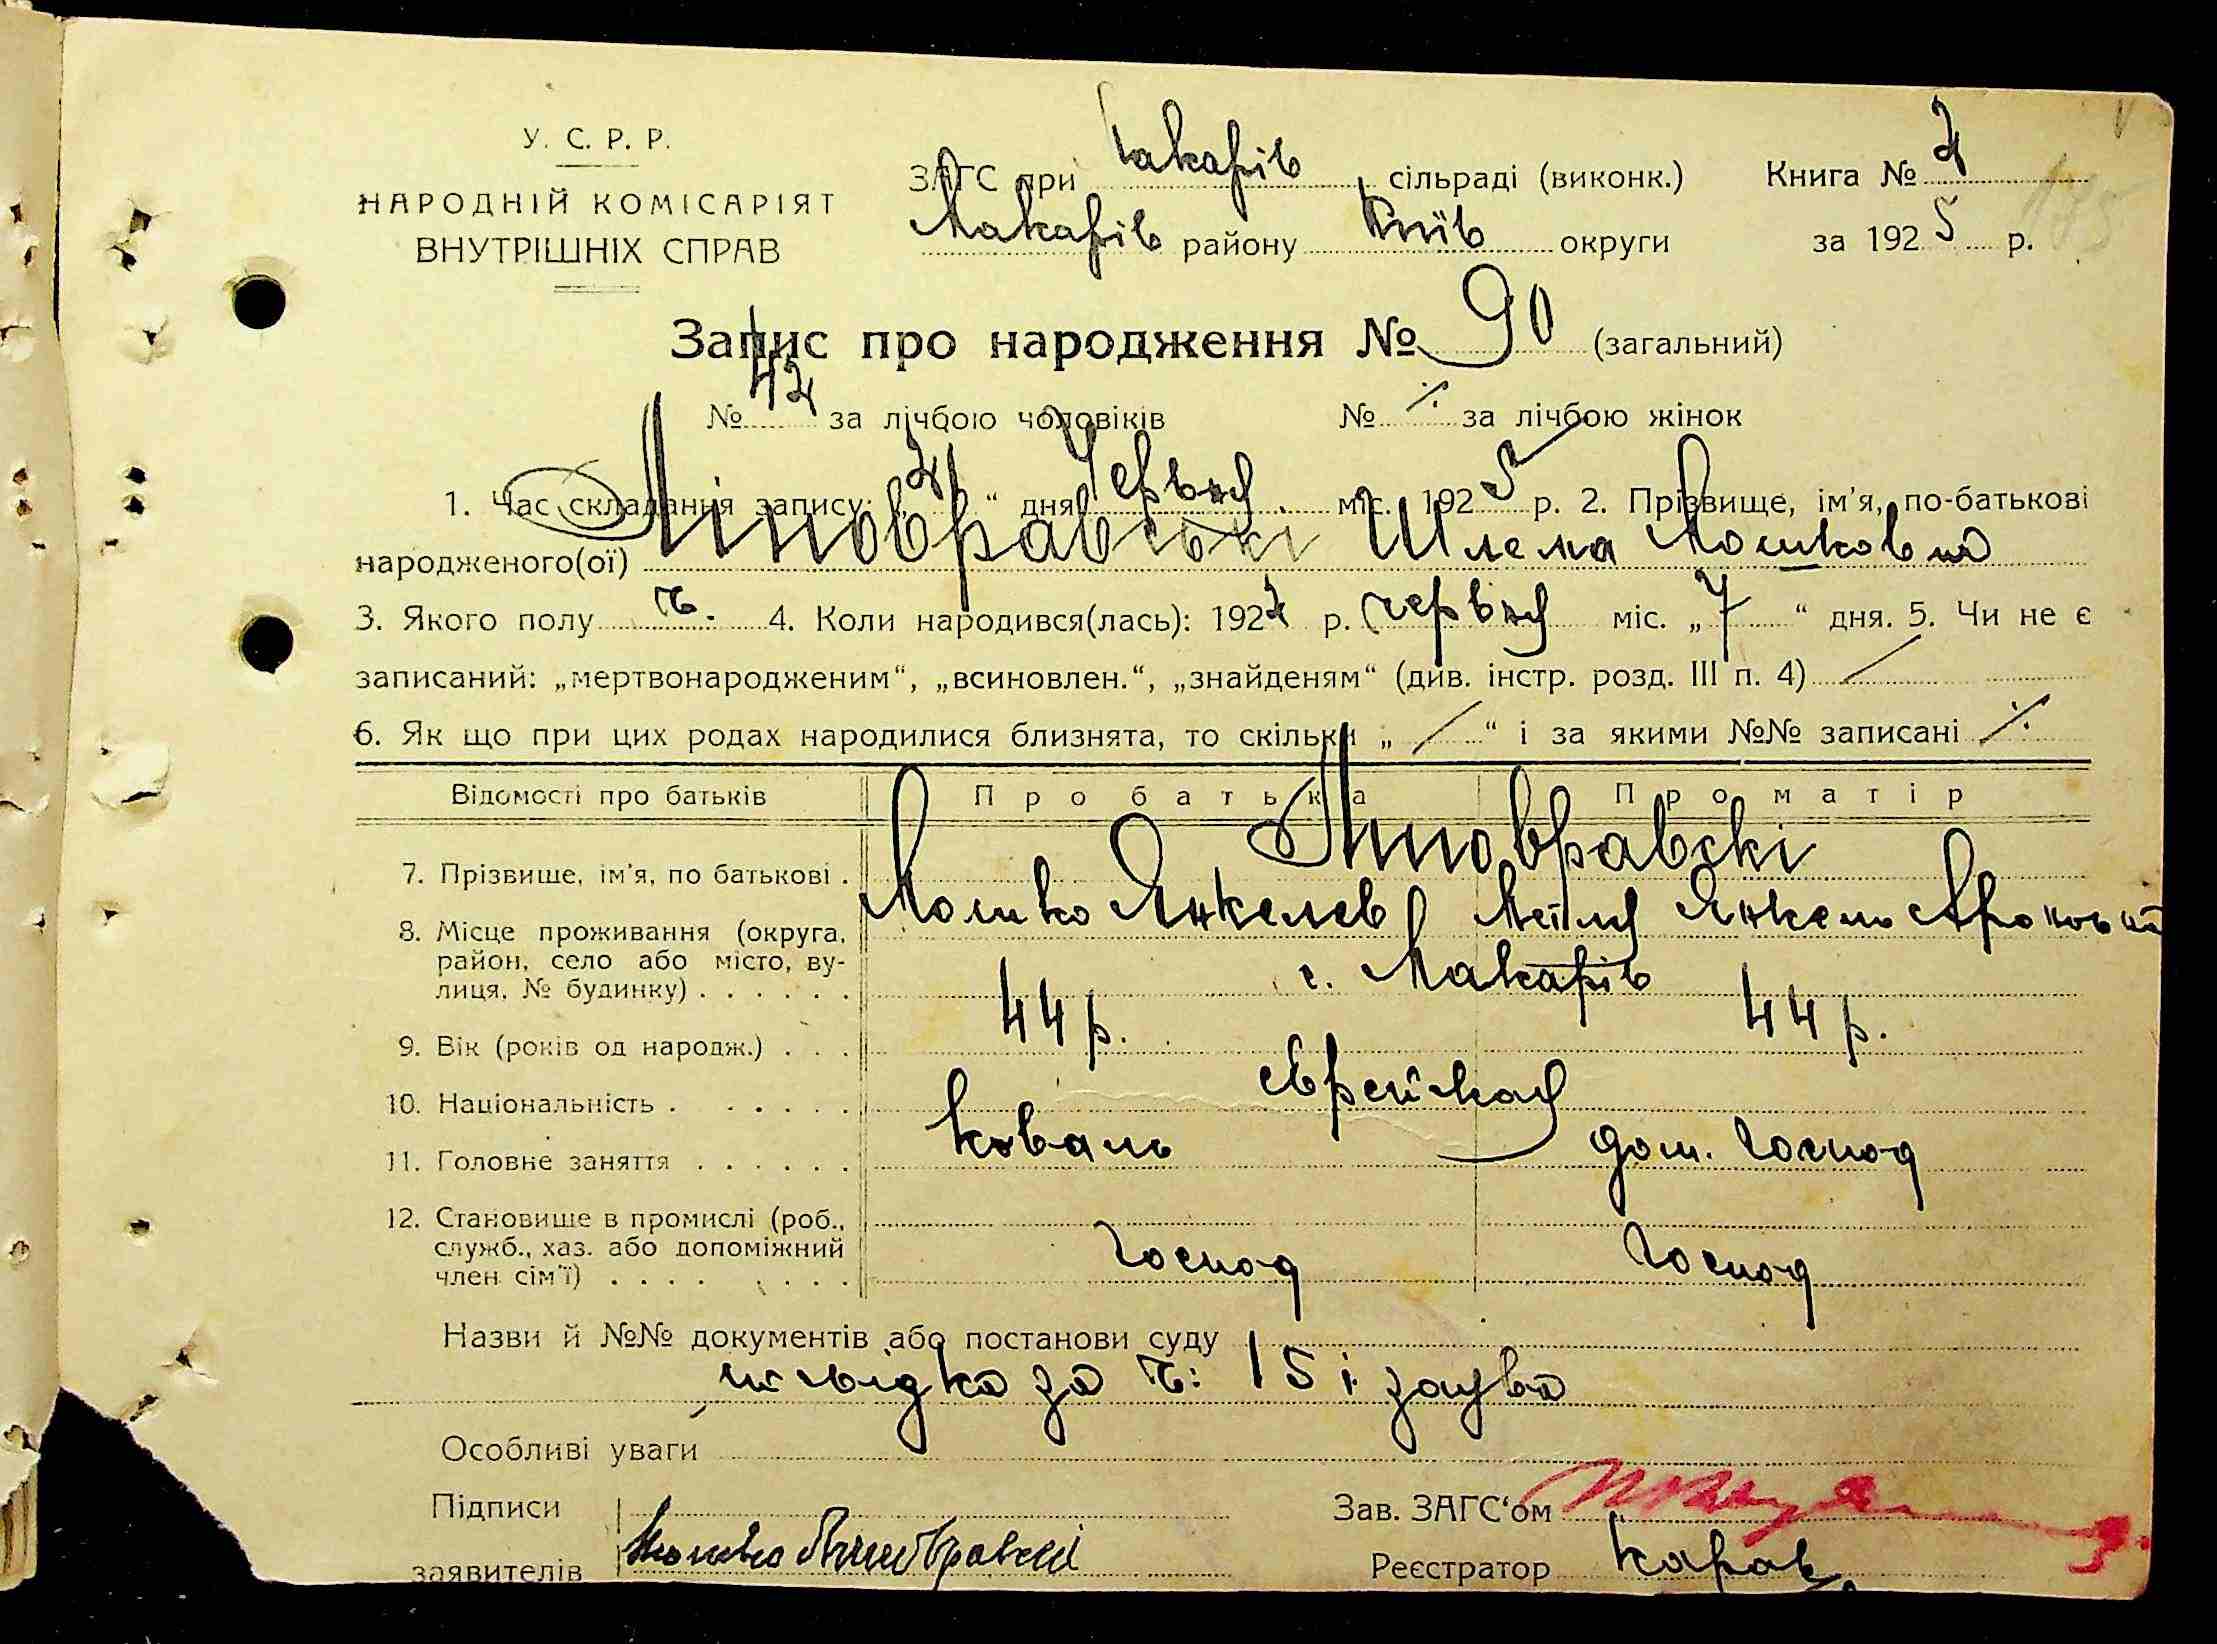 У. С. Р. Р.
НАРОДНІЙ КОМІСАРІЯТ
ВНУТРІШНІХ СПРАВ
ЗАГС при Макарів сільраді (виконк.) Книга № 2
Макарів району Київ округи за 1925 р.
175
Запис про народження № 90 (загальний)
№ 42 за лічбою чоловіків № ⁒ за лічбою жінок
1. Час складання запису: „2“ дня Червня міс. 1925 р. 2. Прізвище, ім'я, по-батькові
народженого(ої) Ліповравські Шлема Мошков
3. Якого полу ч. 4. Коли народився(лась): 1922 р. червня міс. „7“ дня. 5. Чи не є
записаний: „мертвонародженим“, „всиновлен.“, „знайденям“ (див. інстр. розд. III п. 4) /
6. Як що при цих родах народилися близнята, то скільки „ / “ і за якими №№ записані ⁒
Відомості про батьків Про батька Про матір
7. Прізвище, ім'я, по батькові . Ліповравскі
Мошко Янкелев Янкель
8. Місце проживання (округа,
район, село або місто, ву-
лиця, № будинку) . . . . . . с. Макарів
9. Вік (років од народж.) . . . 44 р. 44 р.
10. Національність . . . . . . єврейская
11. Головне заняття . . . . . . коваль дом. господ
12. Становище в промислі (роб.,
служб., хаз. або допоміжний
член сім'ї) . . . . . . . . господ господ
Назви й №№ документів або постанови суду
за ч: 15 і заява
Особливі уваги
Підписи
заявителів Мошко
Зав. ЗАГС'ом
Реєстратор